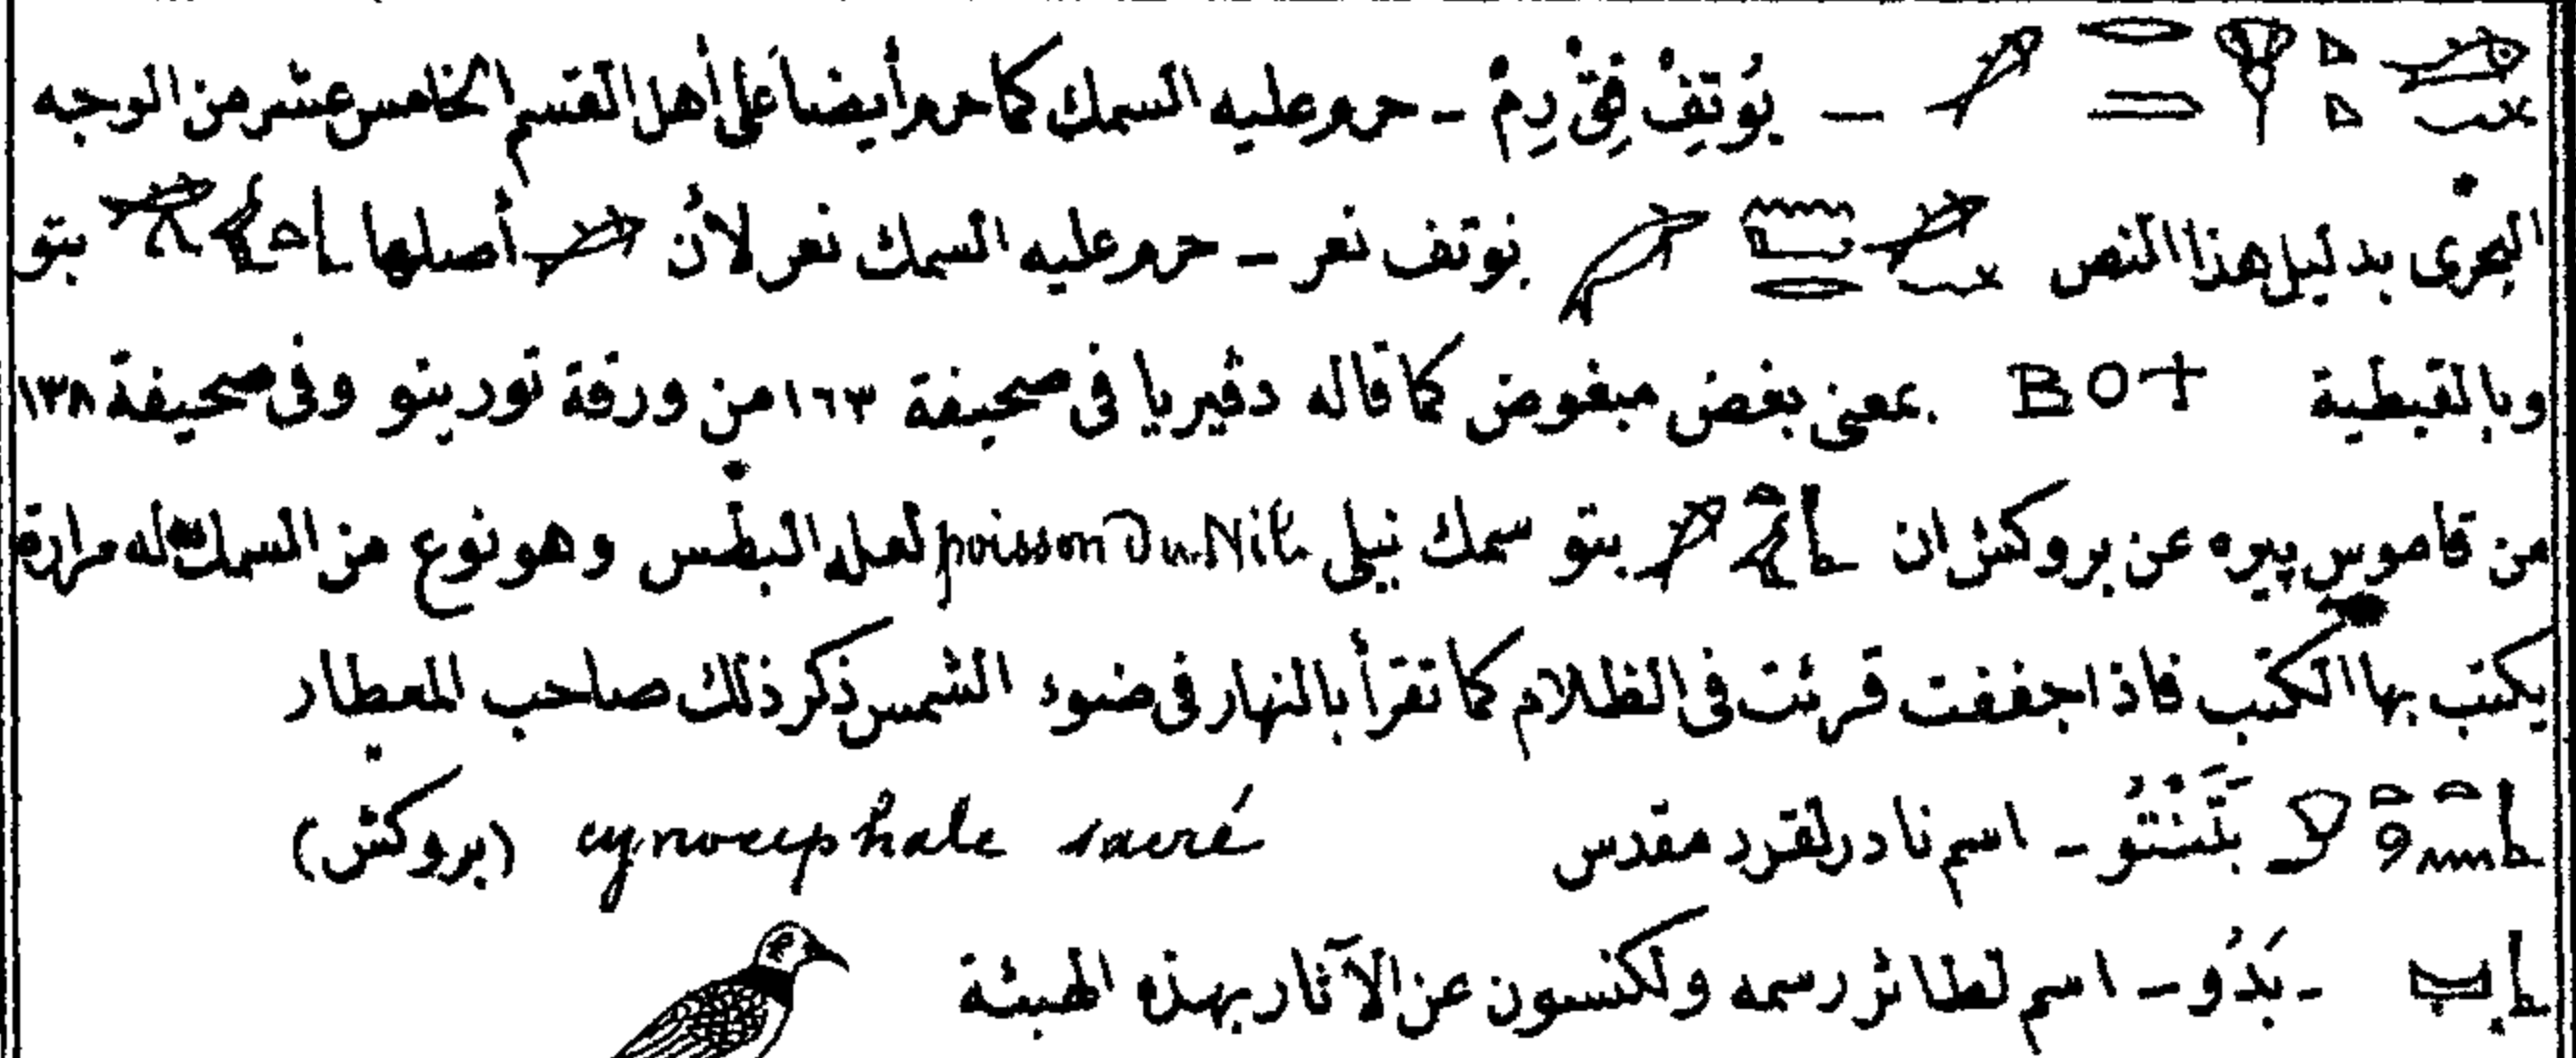 – بُوتِفْ فِقْ رِمْ – حرم عليه السمك كما حرم أيضا على أهل القسم الخامس عشر من الوجه
البحرى بدليل هذا النص بوتف نعر – حرم عليه السمك نعر لأن أصلها بتو
وبالقبطية BOT بمعنى بغض مبغوض كما قاله دڤيريا فى صحيفة ١٦٣ من ورقة تورينو وفى صحيفة ١٣٨
من قاموس پيره عن بروكش ان بتو سمك نيلى poisson du Nil لعله البطس وهو نوع من السمك له مرارة
يكتب بها الكتب فاذا جففت قرئت فى الظلام كما تقرأ بالنهار فى ضوء الشمس ذكر ذلك صاحب المعطار
بَتَنْتُو – اسم نادر لقرد مقدس cynocephale sacré (بروكش)
– بَدُو – اسم لطائر رسمه ولكنسون عن الآثار بهذه الهيئة